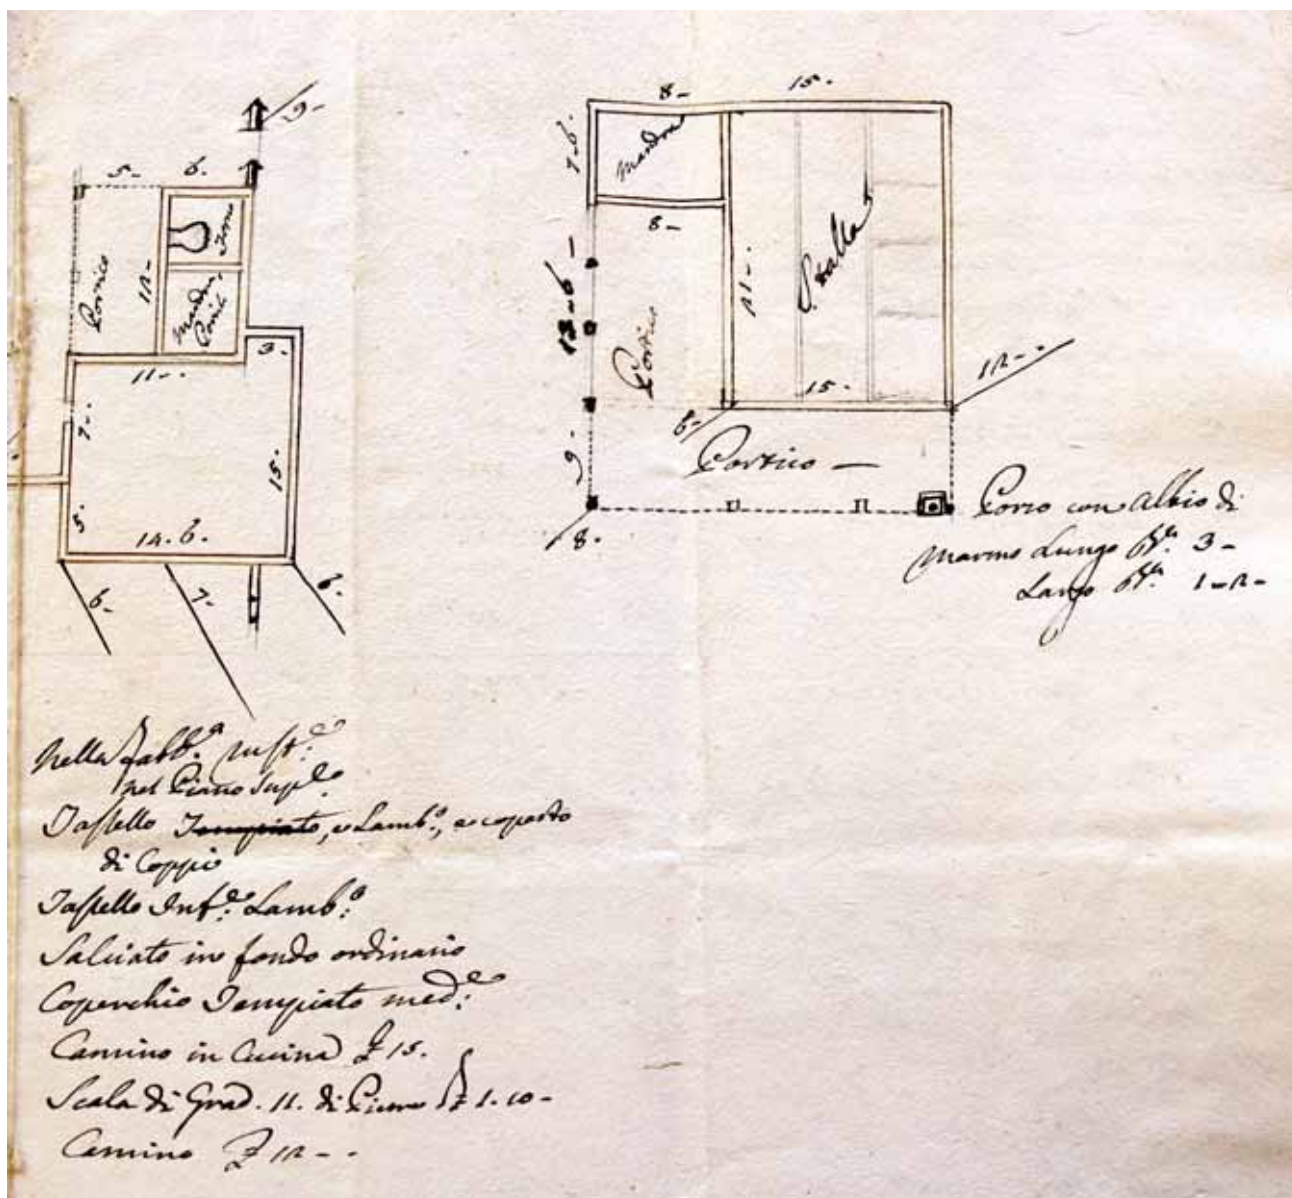 9-
5-
6.
Portico
12-
Forno
3-
11-.
7-
15-
5.
14. 6.
6-
7-
6.
8-
15.
7.6.
8-
Stalla
21-.
Portico
15.
12-.
6-
9-
Portico -
8.
Pozzo con Albio di
Marmo Lungo Bra. 3-
Largo Bra. 1-2-
Nella fabb.a rust.e
nel Piano Sup.e
Tassello Tempiato, e Lamb.o, e coperto
di Coppi
Tassello Inf.e Lamb.o
Saliciato in fondo ordinario
Coperchio Tempiato med.e
Camino in Cucina £ 15.
Scala di Grad. 11. di £ 1.10-
Camino £ 12--